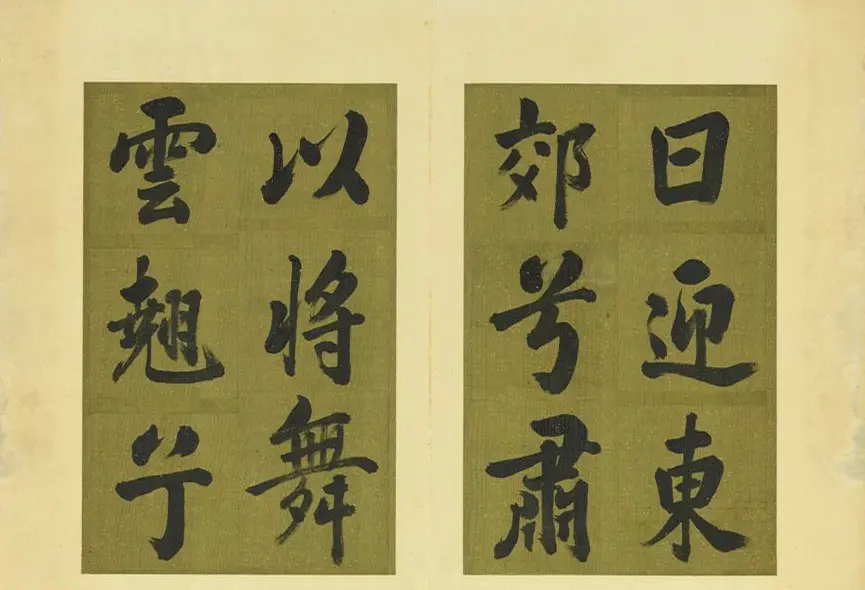 日迎東
郊兮肅
以將舞
雲翹兮